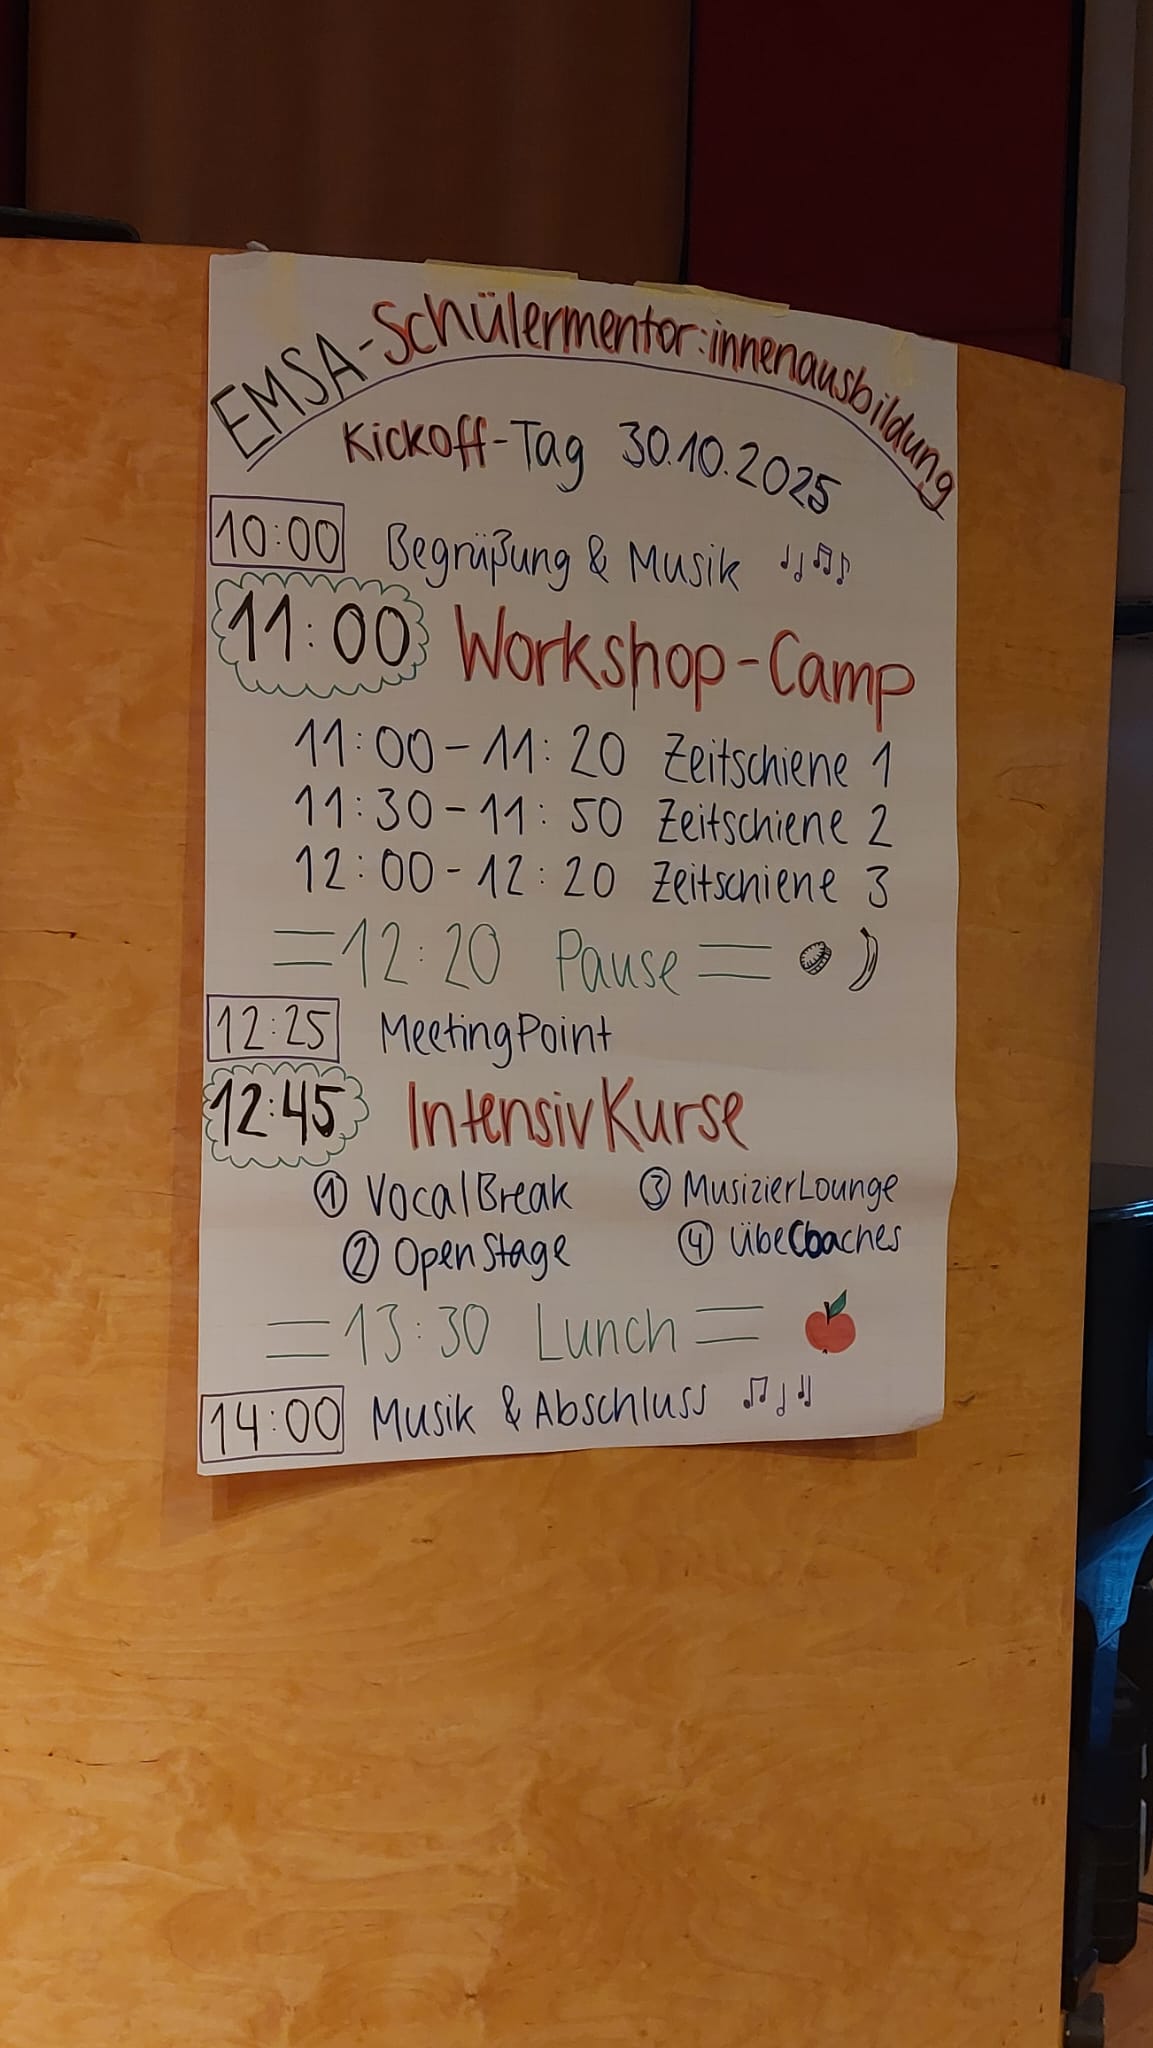 EMSA-Schülermentor:innenausbildung
Kickoff-Tag 30.10.2025
10:00 Begrüßung & Musik
11:00 Workshop-Camp
11:00-11:20 Zeitschiene 1
11:30-11:50 Zeitschiene 2
12:00-12:20 Zeitschiene 3
=12:20 Pause=
12:25 MeetingPoint
12:45 IntensivKurse
① VocalBreak ③ MusizierLounge
② OpenStage ④ übeCoaches
=13:30 Lunch=
14:00 Musik & Abschluss